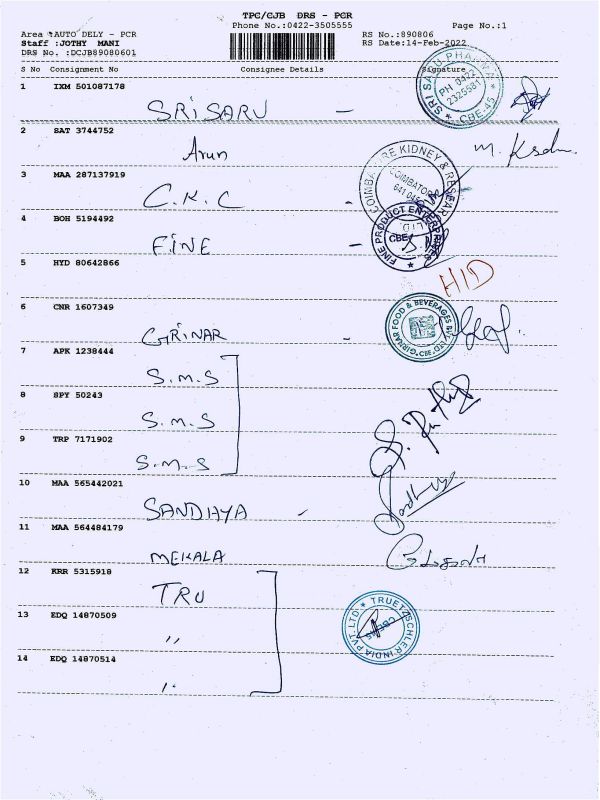 TPC/CJB DRS - PCR
Phone No.:0422-3505555
Page No.:1
Area :AUTO DELY - PCR
Staff :JOTHY MANI
DRS No. :DCJB89080601
RS No.:890806
RS Date:14-Feb-2022
S No Consignment No Consignee Details Signature
1 IXM 501087178
SRI SARU -
SRI SARU PHARMA
PH 0422
2325581
CBE-45
2 SAT 3744752
Arun
3 MAA 287137919
C.K.C -
COIMBATORE KIDNEY & RESEAR
COIMBATORE
4 BOH 5194492
FINE -
FINE PRODUCT ENTERPRISES
CBE
5 HYD 80642866
HID
6 CNR 1607349
GRINAR -
GIRNAR FOOD & BEVERAGES PVT LTD
CBE
7 APK 1238444
S.M.S
8 SPY 50243
S.M.S
9 TRP 7171902
S.M.S
10 MAA 565442021
SANDHYA -
11 MAA 564484179
MEKALA
12 KRR 5315918
TRU
13 EDQ 14870509
"
TRUETZSCHLER INDIA PVT. LTD
14 EDQ 14870514
"